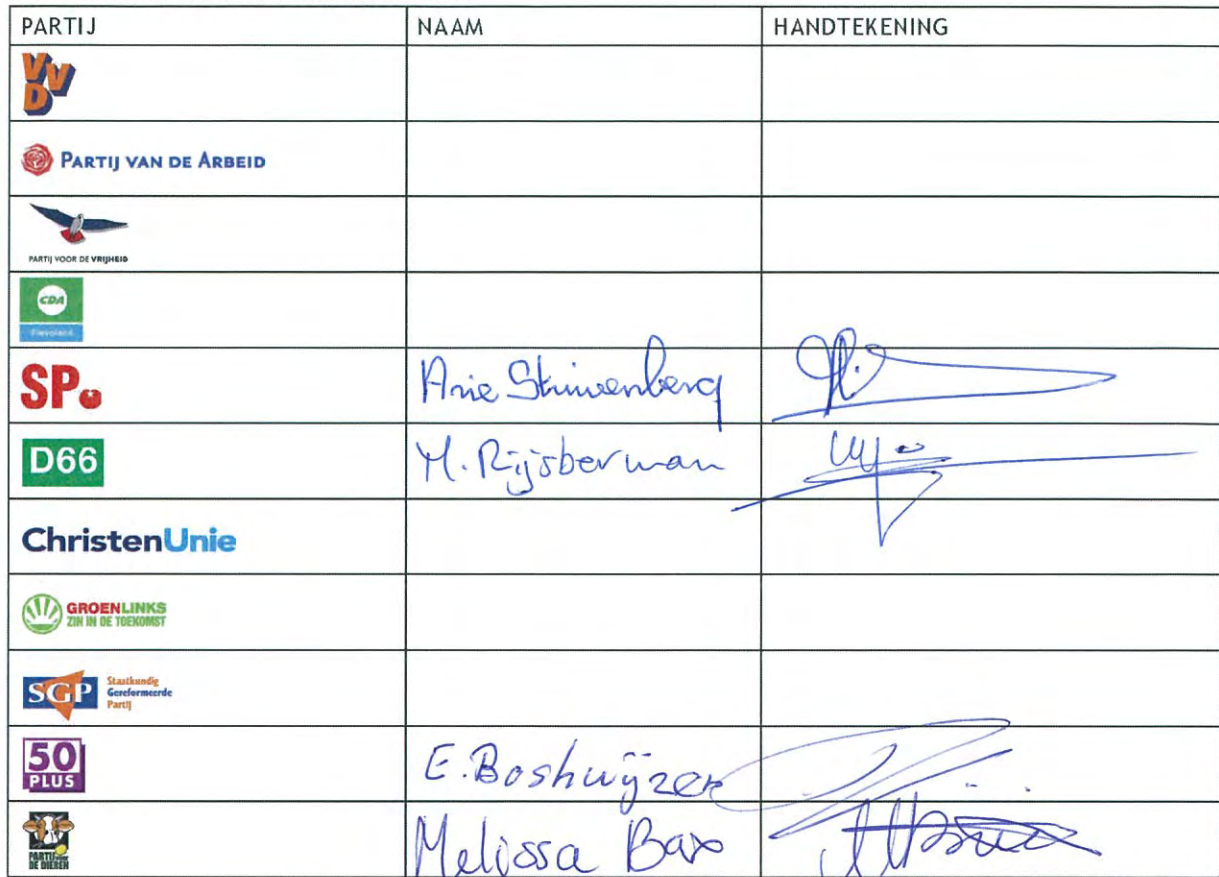 PARTIJ NAAM HANDTEKENING
VVD
PARTIJ VAN DE ARBEID
PARTIJ VOOR DE VRIJHEID
CDA
Flevoland
SP. Arie Stuivenberg
D66 M. Rijsberman
ChristenUnie
GROENLINKS
ZIN IN DE TOEKOMST
SGP Staatkundig
Gereformeerde
Partij
50 E. Boshuijzen
PLUS
PARTIJ voor Melissa Bax
DE DIEREN